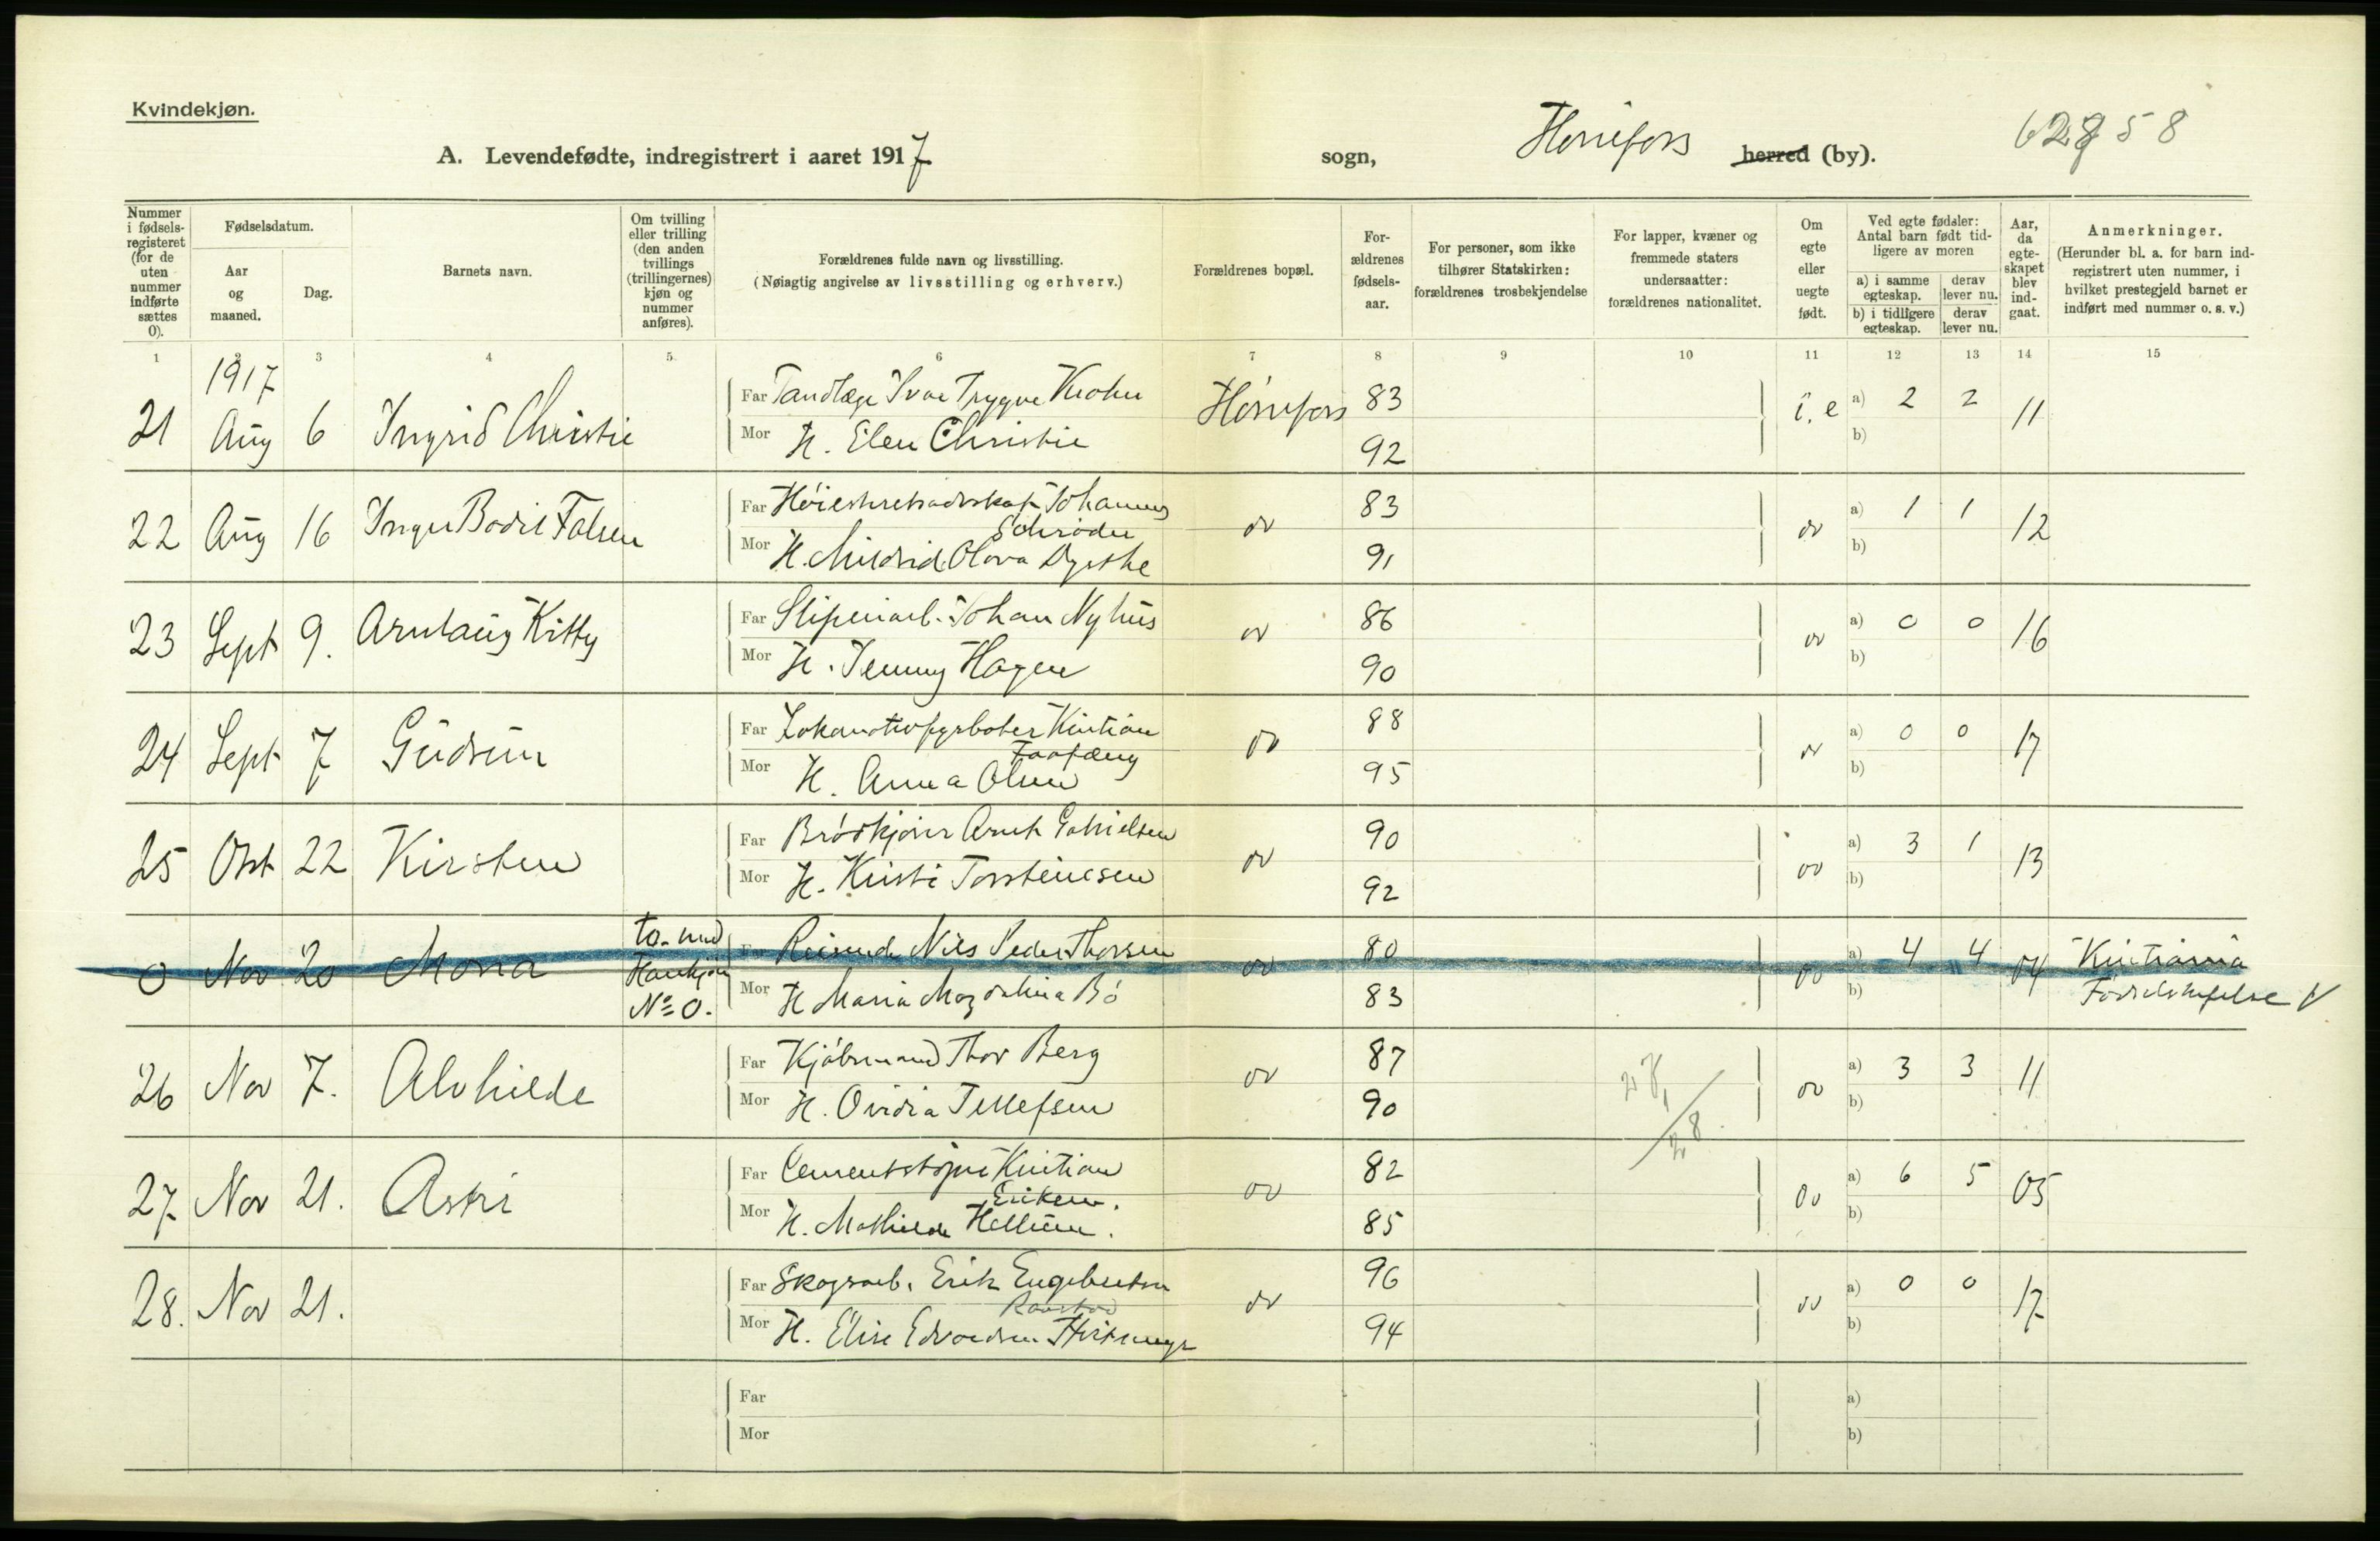 Kvindekjøn.
A. Levendefødte, indregistrert i aaret 1917
sogn,
Hønefoss herred (by).
58
Nummer i fødselsregisteret (for de uten nummer indførte sættes 0).
Fødselsdatum.
Aar og maaned.
Dag.
Barnets navn.
Om tvilling eller trilling (den anden tvillings (trillingernes) kjøn og nummer anføres).
Forældrenes fulde navn og livsstilling.
(Nøiagtig angivelse av livsstilling og erhverv.)
Forældrenes bopæl.
Forældrenes fødselsaar.
For personer, som ikke tilhører Statskirken: forældrenes trosbekjendelse
For lapper, kvæner og fremmede staters undersaatter: forældrenes nationalitet.
Om egte eller uegte født.
Ved egte fødsler: Antal barn født tidligere av moren
a) i samme egteskap.
derav lever nu.
b) i tidligere egteskap.
derav lever nu.
Aar, da egteskapet blev indgaat.
Anmerkninger.
(Herunder bl. a. for barn indregistrert uten nummer, i hvilket prestegjeld barnet er indført med nummer o. s. v.)
1 2 3 4 5 6 7 8 9 10 11 12 13 14 15
1917
21 Aug 6 Ingrid Christie Far Tandlæge Ivar Trygve Krohn Hønefoss 83 i. e a) 2 2 11
Mor H. Elen Christie 92 b)
22 Aug 16 Inger Bodil Falsen Far Johannes Schrøder do 83 do a) 1 1 12
Mor H. Mildrid Olava Dysthe 91 b)
23 Sept 9. Arnlaug Kitty Far Sliperiarb. Johan Nyhus do 86 do a) 0 0 16
Mor H. Jenny Hagen 90 b)
24 Sept 7 Gudrun Far Lokomotivfyrbøter Kristian do 88 do a) 0 0 17
Mor H. Anna Olsen 95 b)
25 Okt 22 Kirsten Far Brødkjører Arnt Gabrielsen do 90 do a) 3 1 13
Mor H. Kristi Torsteinsen 92 b)
0 Nov 20 Mona to. med Hankjøn No 0. Far Reisende Nils Peder Thorsen do 80 do a) 4 4 04 Kristiania
Mor H Maria Magdalina Bö 83 b) Fødselsstiftelse
26 Nov 7. Alvhilde Far Kjøbmand Thor Berg do 87 do a) 3 3 11
Mor H. Ovidia Tellefsen 90 b)
28
27 Nov 21. Astri Far Cementstøper Kristian Eriksen. do 82 do a) 6 5 05
Mor H. Mathilde Hellum. 85 b)
28. Nov 21. Far Skogsarb. Erik Engebretsen do 96 do a) 0 0 17
Mor H. Elise Edvardsen 94 b)
Far a)
Mor b)